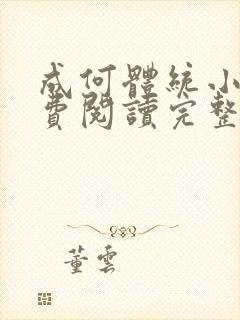 成何體統小
費閱讀完整
董雲